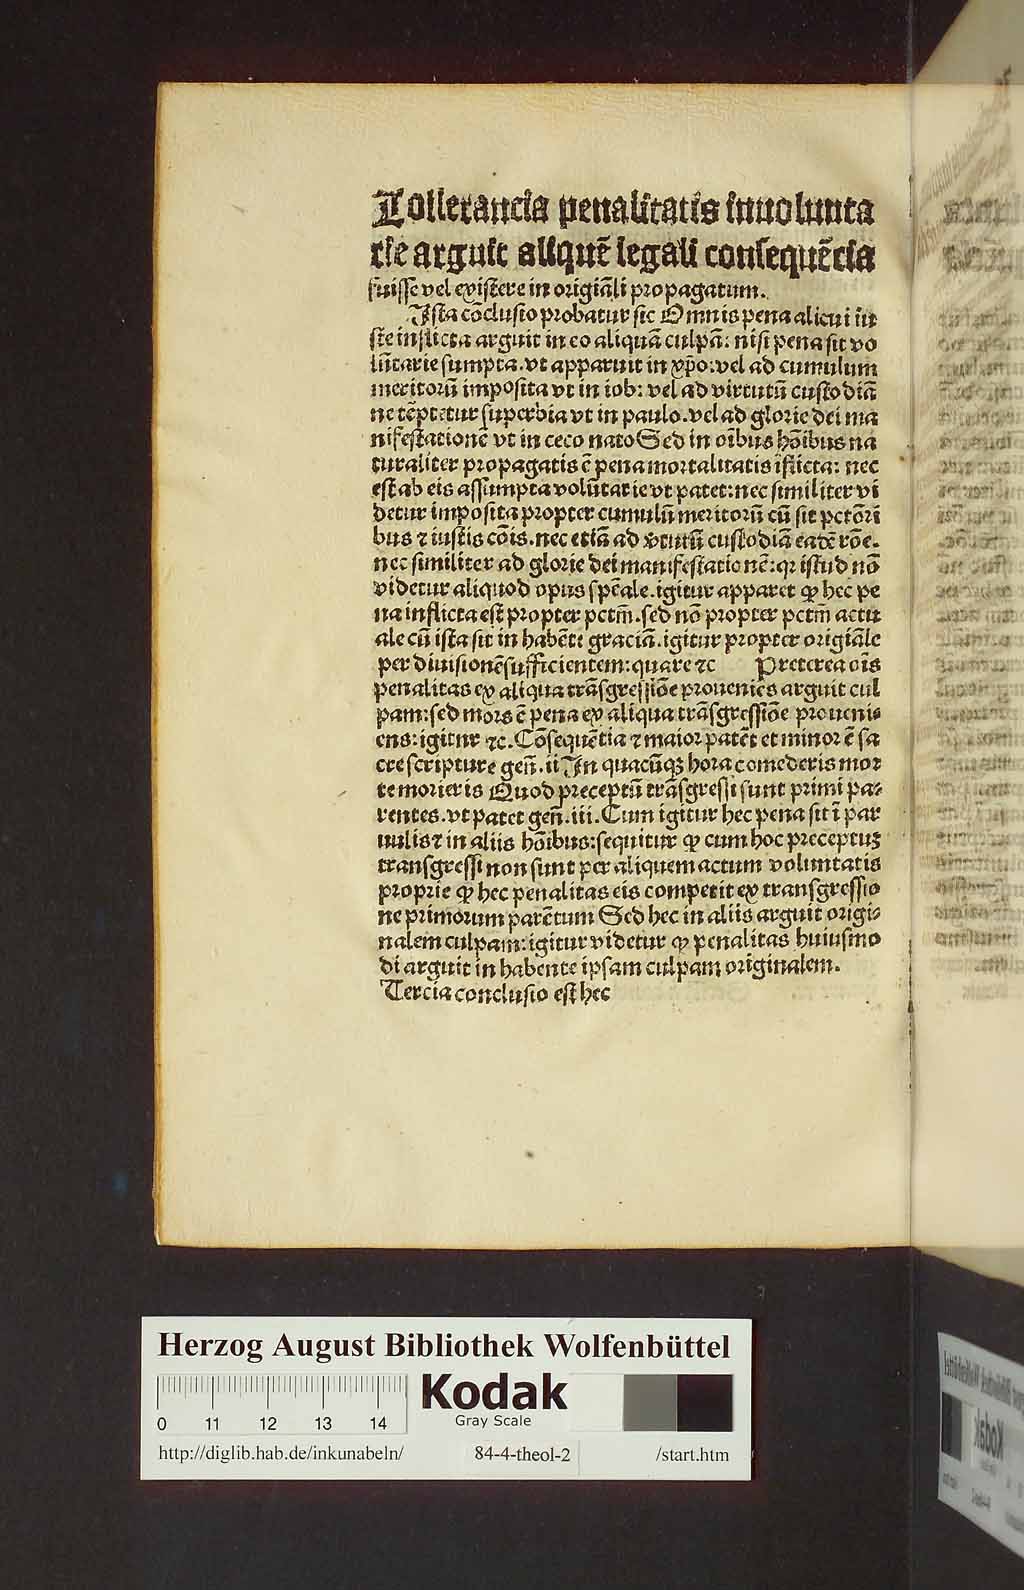 Tollerancia penalitatis inuolunta
rie arguit aliquē legali consequēcia
fuisse vel existere in origiāli propagatum.
Ista cōclusio probatur sic Omnis pena alicui iu
ste inflicta arguit in eo aliquā culpā: nisi pena sit vo
lūtarie sumpta. vt apparuit in xp̄o: vel ad cumulum
meritorū imposita vt in iob: vel ad virtutū custodiā
ne tēptetur superbia vt in paulo. vel ad glorie dei ma
nifestationē vt in ceco nato Sed in oībus hōibus na
turaliter propagatis ē pena mortalitatis īflicta: nec
est ab eis assumpta volūtarie vt patet: nec similiter vi
detur imposita propter cumulū meritorū cū sit pctōri
bus ⁊ iustis cōis. nec etiā ad v̓tutū custodiā eadē rōe.
nec similiter ad glorie dei manifestationē: qꝛ istud nō
videtur aliquod opus spēale. igitur apparet ꝙ hec pe
na inflicta est propter pctm̄. sed nō propter pctm̄ actu
ale cū ista sit in habēti graciā. igitur propter origiāle
per diuisionē sufficientem: quare ⁊c Preterea oīs
penalitas ex aliqua trāsgressiōe proueniēs arguit cul
pam: sed mors ē pena ex aliqua trāsgressiōe proueni⸗
ens: igitur ⁊c. Cōsequētia ⁊ maior patēt et minor ē sa
cre scripture gen̄. ii In quacūqꝫ hora comederis mor
te morieris Quod preceptū trāsgressi sunt primi pa⸗
rentes. vt patet gen̄. iii. Cum igitur hec pena sit ī par
uulis ⁊ in aliis hōibus: sequitur ꝙ cum hoc preceptuꝫ
transgressi non sunt per aliquem actum voluntatis
proprie ꝙ hec penalitas eis competit ex transgressio
ne primorum parētum Sed hec in aliis arguit origi⸗
nalem culpam: igitur videtur ꝙ penalitas huiusmo
di arguit in habente ipsam culpam originalem.
Tercia conclusio est hec
Herzog August Bibliothek Wolfenbüttel
Kodak
Gray Scale
0 11 12 13 14
http://diglib.hab.de/inkunabeln/ 84-4-theol-2 /start.htm